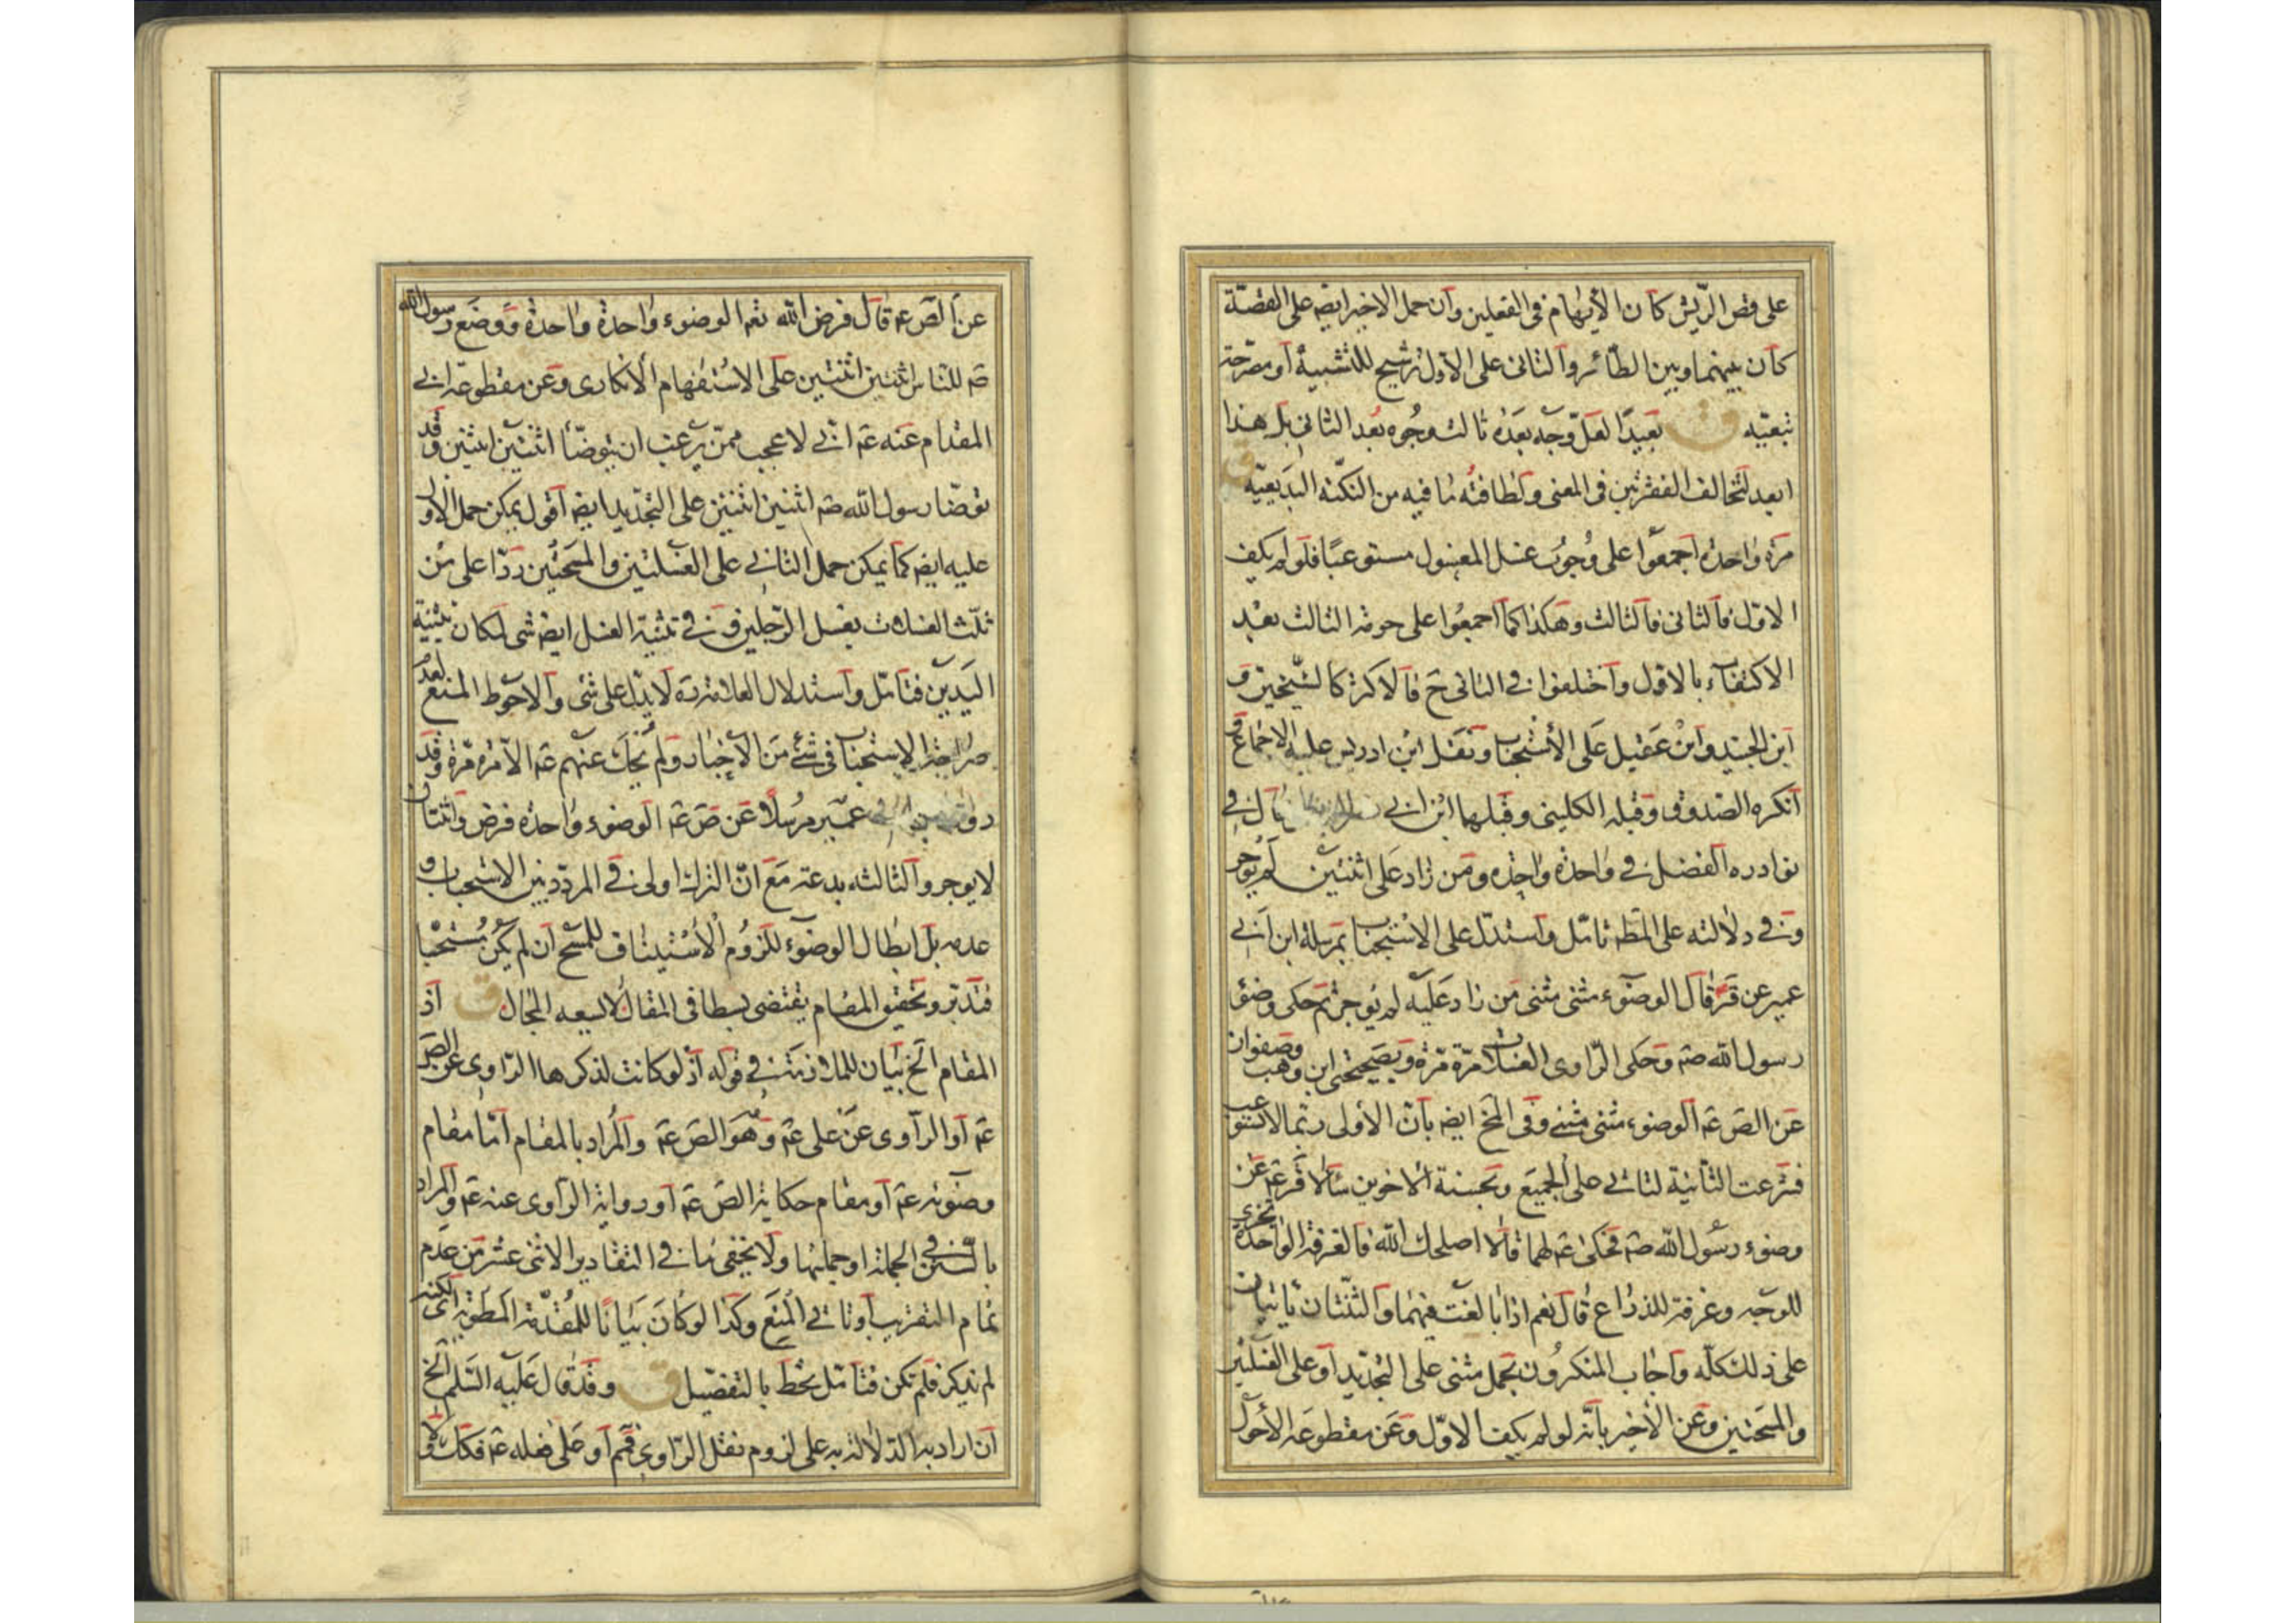 على قص الريش كان الايهام فى الفعلين وان حمل الاخير ايضه على القصة
كان بينهما وبين الطائر والثانى على الاول ترشيح للتشبيه او مصرحة
تبعيه ق بعيدا لعل وجه بعده ثالث وجوه بعد الثانى بل هذا
ابعد لتخالف الفقرتين فى المعنى ولطافته ما فيه من النكته البديعيه ق
مرة واحدة اجمعوا على وجوب غسل المغسول مستوعبا فلو لم يكف
الاول فالثانى فالثالث وهكذا كما اجمعوا على حرمة الثالث بعد
الاكتفاء بالاول واختلفوا فى الثانى ح فالاكثر كالشيخين و
ابن الجنيد وابن عقيل على الاستحباب ونقل ابن ادريس عليه الاجماع و
انكره الصدوق وقبله الكلينى وقبلهما ابن ابى قال فى
نوادره الفضل فى واحدة واحدة ومن زاد على اثنتين لم يوجر
وفى دلالته على المط تامل واستدل على الاستحباب بمرسلة ابن ابى
عمير عن قر قال الوضوء مثنى مثنى من زاد عليه لم يوجر ثم حكى وضوء
رسول الله صم وحكى الراوى الغسلات مرة مرة وبصحيحتى ابن وهب وصفوان
عن الص عم الوضوء مثنى مثنى وفى المخ ايضه بان الاولى ربما لا تستوعب
فشرعت الثانية لتاتى على الجميع وبحسنة الاخوين سالا قر عم عن
وضوء رسول الله صم فحكى عم لهما قالا اصلحك الله فالغرفة الواحدة تجزى
للوجه وغرفة للذراع قال نعم اذا بالغت فيهما والثنتان ياتيان
على ذلك كله واجاب المنكرون بحمل مثنى على التجديد او على الغسلتين
والمسحتين وعن الاخير بانه لو لم يكف الاول وعن مقطوعة الاحول
عن الص عم قال فرض الله تعه الوضوء واحدة واحدة ووضع رسول الله
صم للناس اثنتين اثنتين على الاستفهام الانكارى وعن مقطوعة ابى
المقدام عنه عم انى لاعجب ممن يرغب ان يتوضأ اثنتين اثنتين وقد
توضا رسول الله صم اثنتين اثنتين على التجديد ايضه اقول يمكن حمل الاول
عليه ايضه كما يمكن حمل الثانى على الغسلتين والمسحتين ردا على من
ثلث الغسلات بغسل الرجلين وفى تثنية الغسل ايضه شى لمكان تثنية
اليدين فتامل واستدلال العلامة ره لا يدل على شى والاحوط المنع لعدم
صراحة الاستحباب فى شئ من الاخبار ولم يحك عنهم عم الا مرة مرة وقد
روى عمير مرسلا عن ص عم الوضوء واحدة فرض واثنتان
لا يوجر والثالثه بدعة مع ان الترك اولى فى المردد بين الاستحباب و
عدمه بل ابطال الوضوء للزوم الاستيناف للمسح ان لم يكن مستحبا
فتدبر وتحقيق المقام يقتضى بسطا فى المقال لا يسعه المجال ق اذ
المقام الخ بيان للملازمة فى قوله اذ لو كانت لذكرها الراوى عن الص
عم او الراوى عن على عم وهو الص عم والمراد بالمقام اما مقام
وضوئه عم او مقام حكاية الص عم او رواية الراوى عنه عم والمراد
بالسنن فى الجملة او جملتها ولا يخفى ما فى التقادير الاثنى عشر من عدم
تمام التقريب وتاتى المنع وكذا لو كان بيانا للمقدمة المطوية اى لكنه
لم يذكر فلم تكن فتامل تحط بالتفصيل ق وقد قال عليه السلم الخ
ان اراد به الدلالة به على لزوم نقل الراوى فمم او على فعله عم فكك